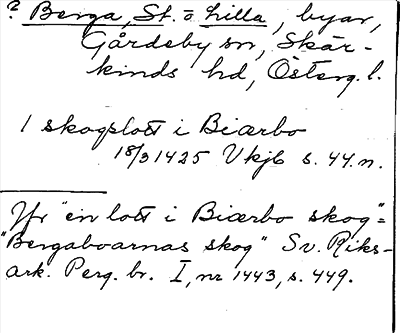 ? Berga, St. o. Lilla, byar,
Gårdeby sn, Skär-
kinds hd, Österg. l.
1 skogslott i Biærbo
18/3 1425 Vkjb s. 44.n.
Jfr "en lott i Biærbo skog" =
"Bergaboarnas skog" Sv. Riks-
ark. Perg. br. I, nr 1443, s. 449.